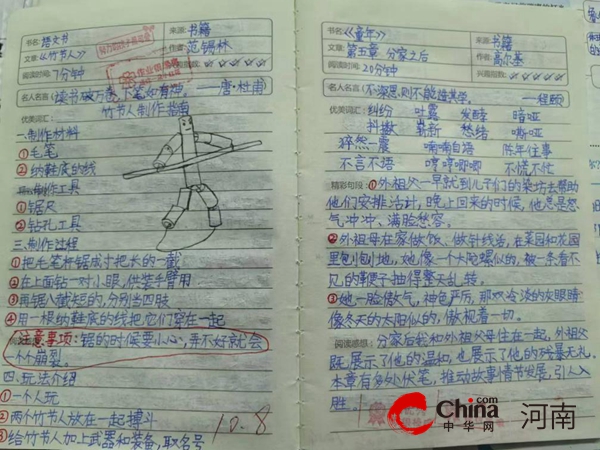 书名:语文书
来源:书籍
文章:《竹节人》
作者:范锡林
阅读时间:7分钟
名人名言:读书破万卷,下笔如有神。——唐·杜甫
优美词汇:
竹节人制作指南
一.制作材料
①毛笔
②纳鞋底的线
二.制作工具
①锯尺
②钻孔工具
三.制作过程
①把毛笔杆锯成寸把长的一截
②在上面钻一对小眼,供装手臂用
③再锯八截短的,分别当四肢
④用一根纳鞋底的线把它们穿在一起
注意事项:锯的时候要小心,弄不好就会
个个崩裂。
四.玩法介绍
①一个人玩
②两个竹节人放在一起搏斗
③给竹节人加上武器和装备,取名号
10.8
书名:《童年》
来源:书籍
文章:第三章 分家之后
作者:高尔基
阅读时间:20分钟
名人名言:不深思则不能造其学。——程颐
优美词汇:纠纷 吐露 发酵 暗哑
抖擞 崭新 愁绪 嘶哑
猝然一震 喃喃自语 陈年往事
不言不语 哼哼唧唧 不慌不忙
精彩句段:①外祖父一早就到儿子们的染坊去帮助
他们安排活计,晚上回来的时候,他总是怒
气冲冲、满脸愁容。
②外祖母在家做饭、做针线活,在菜园和花园
里刨刨地,她像一个大陀螺似的,被一条看不
见的鞭子抽得整天乱转。
③她一脸傲气,神色严厉,那双冷淡的灰眼睛
像冬天的太阳似的,傲视着一切。
阅读感感:分家后我和外祖父母住在一起,外祖父
既展示了他的温和,也展示了他的残暴无礼。
本章有多处伏笔,推动故事情节发展,引人入
胜。
China.com
中华网
河南